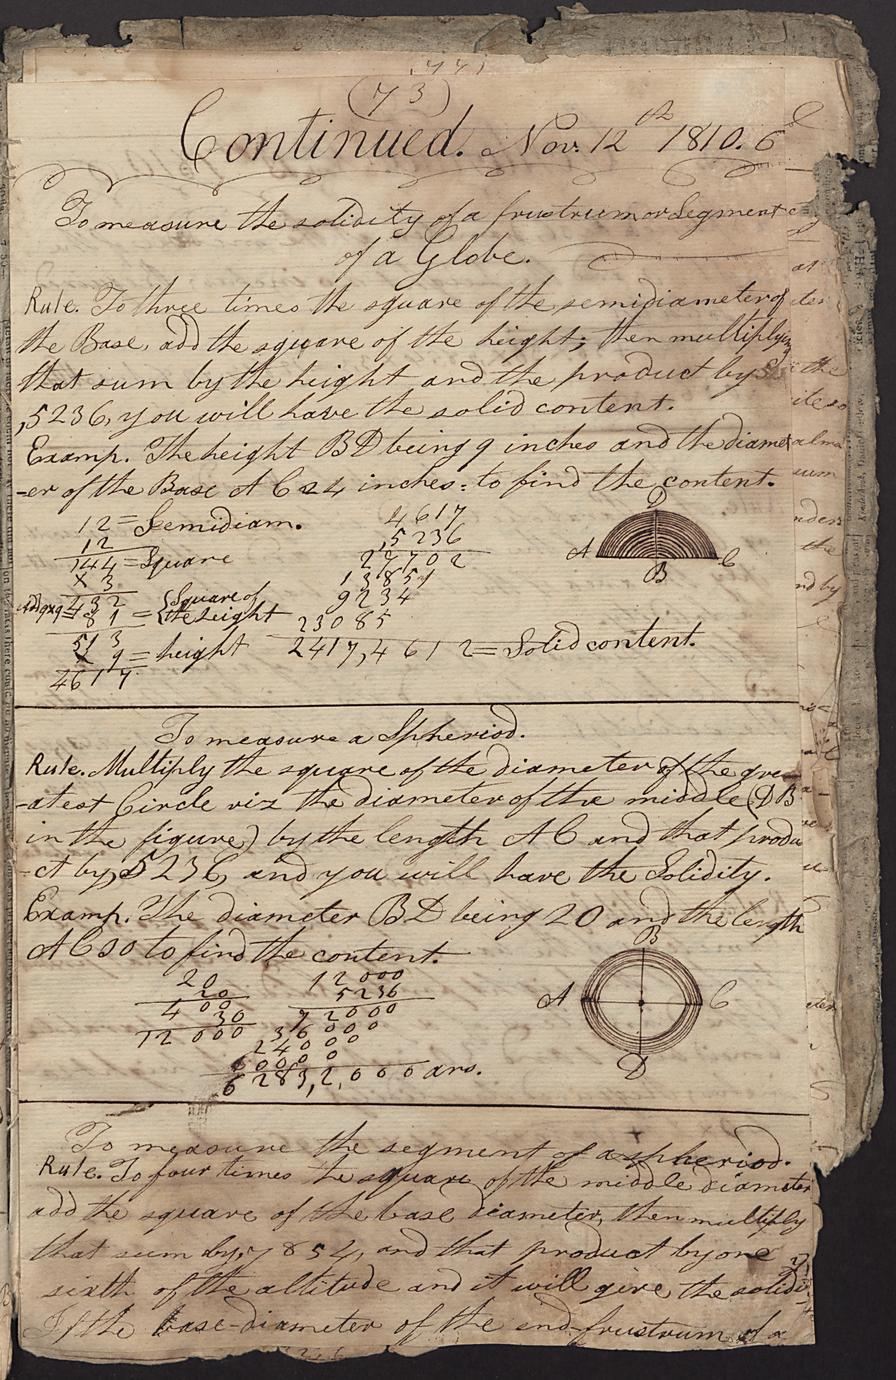 (73)
Continued. Nov. 12th 1810. 6
To measure the solidity of a frustrum or Segment
of a Globe.
Rule. To three times the square of the semidiameter of
the Base, add the square of the height; then multiplying
that sum by the height and the product by
,5236, you will have the solid content.
Examp. The height BD being 9 inches and the diamet
-er of the Base AC 24 inches: to find the content.
12 = Semidiam.
12
144 = Square
x 3
432
Add 9x9 = 81 = {Square of the height
513
x 9 = height
4617
4617
,5236
27702
13851
9234
23085
2417,4612 = Solid content.
D
A C
B
To measure a Spheriod.
Rule. Multiply the square of the diameter of the gre
-atest Circle viz the diameter of the middle (DB
in the figure) by the length AC and that produ
-ct by,5236, and you will have the Solidity.
Examp. The diameter BD being 20 and the length
AC 30 to find the content.
20
20
400
30
12000
12000
5236
72000
36000
24000
60000
6283,2,000 ans.
B
A C
D
To measure the segment of a spheriod.
Rule. To four times the square of the middle diameter
add the square of the base diameter, then multiply
that sum by,7854, and that product by one
sixth of the altitude and it will give the solidi
If the base-diameter of the end-frustrum of a